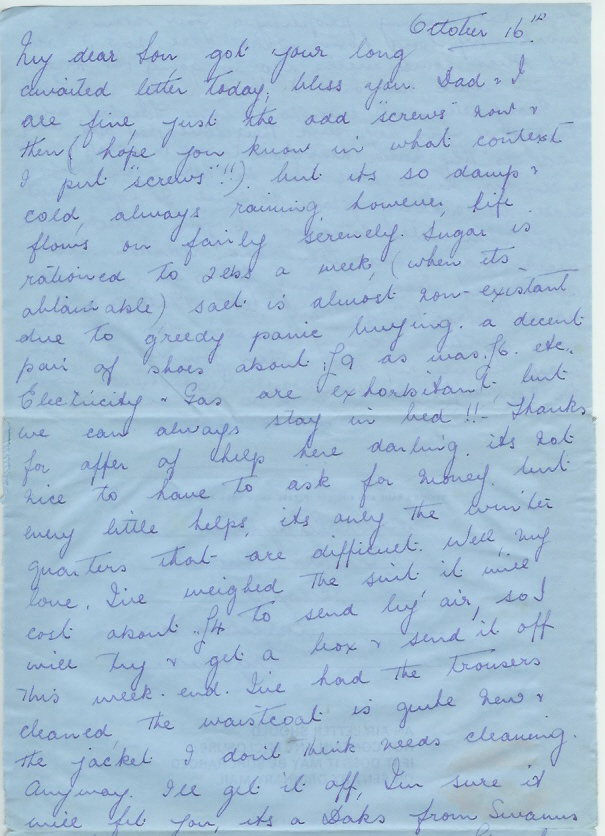 October 16th
My dear Son got your long
awaited letter today, bless you. Dad & I
are fine just the odd "screws" now &
then (hope you know in what context
I put "screws"!!) but its so damp &
cold, always raining however, life
flows on fairly serenely. Sugar is
rationed to 2lbs a week, (when its
obtainable) salt is almost non-existant
due to greedy panic buying. a decent
pair of shoes about £9 as was £6. etc.
Electricity & Gas are exhorbitant but
we can always stay in bed!! Thanks
for offer of help here darling. its not
nice to have to ask for money. but
every little helps, its only the winter
quarters that are difficult. Well, my
love, I've weighed the suit it will
cost about £4 to send by air, so I
will try & get a box & send it off
this week-end. I've had the trousers
cleaned, the waistcoat is quite new &
the jacket I don't think needs cleaning.
Anyway. I'll get it off, I'm sure it
will fit you, its a Daks from Swanns